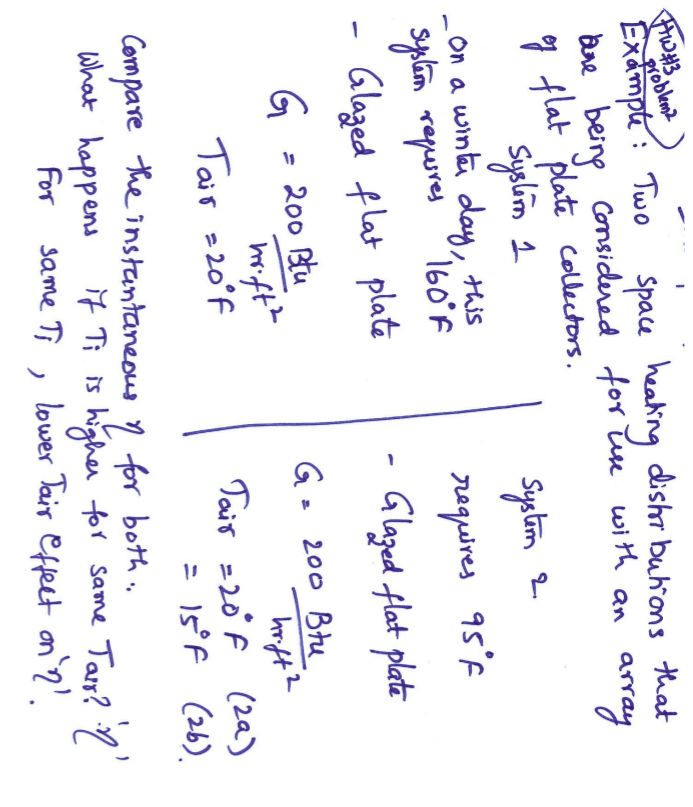 HW#3
problem2
Example: Two space heating distributions that
are being considered for use with an array
of flat plate collectors.
System 1
- On a winter day, this
system requires 160°F
- Glazed flat plate
G = 200 Btu
hr.ft²
Tair = 20°F
System 2.
requires 95°F
- Glazed flat plate
G = 200 Btu
hr.ft²
Tair = 20°F (2a)
= 15°F (2b).
Compare the instantaneous η for both.
What happens if Ti is higher for same Tair? 'η'
For same Ti, lower Tair effect on 'η'.